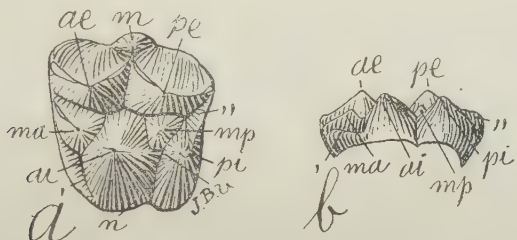 ae m pe
ma " mp
ai pi
n J.B.U.
a
ae pe
' ma ai mp pi "
b